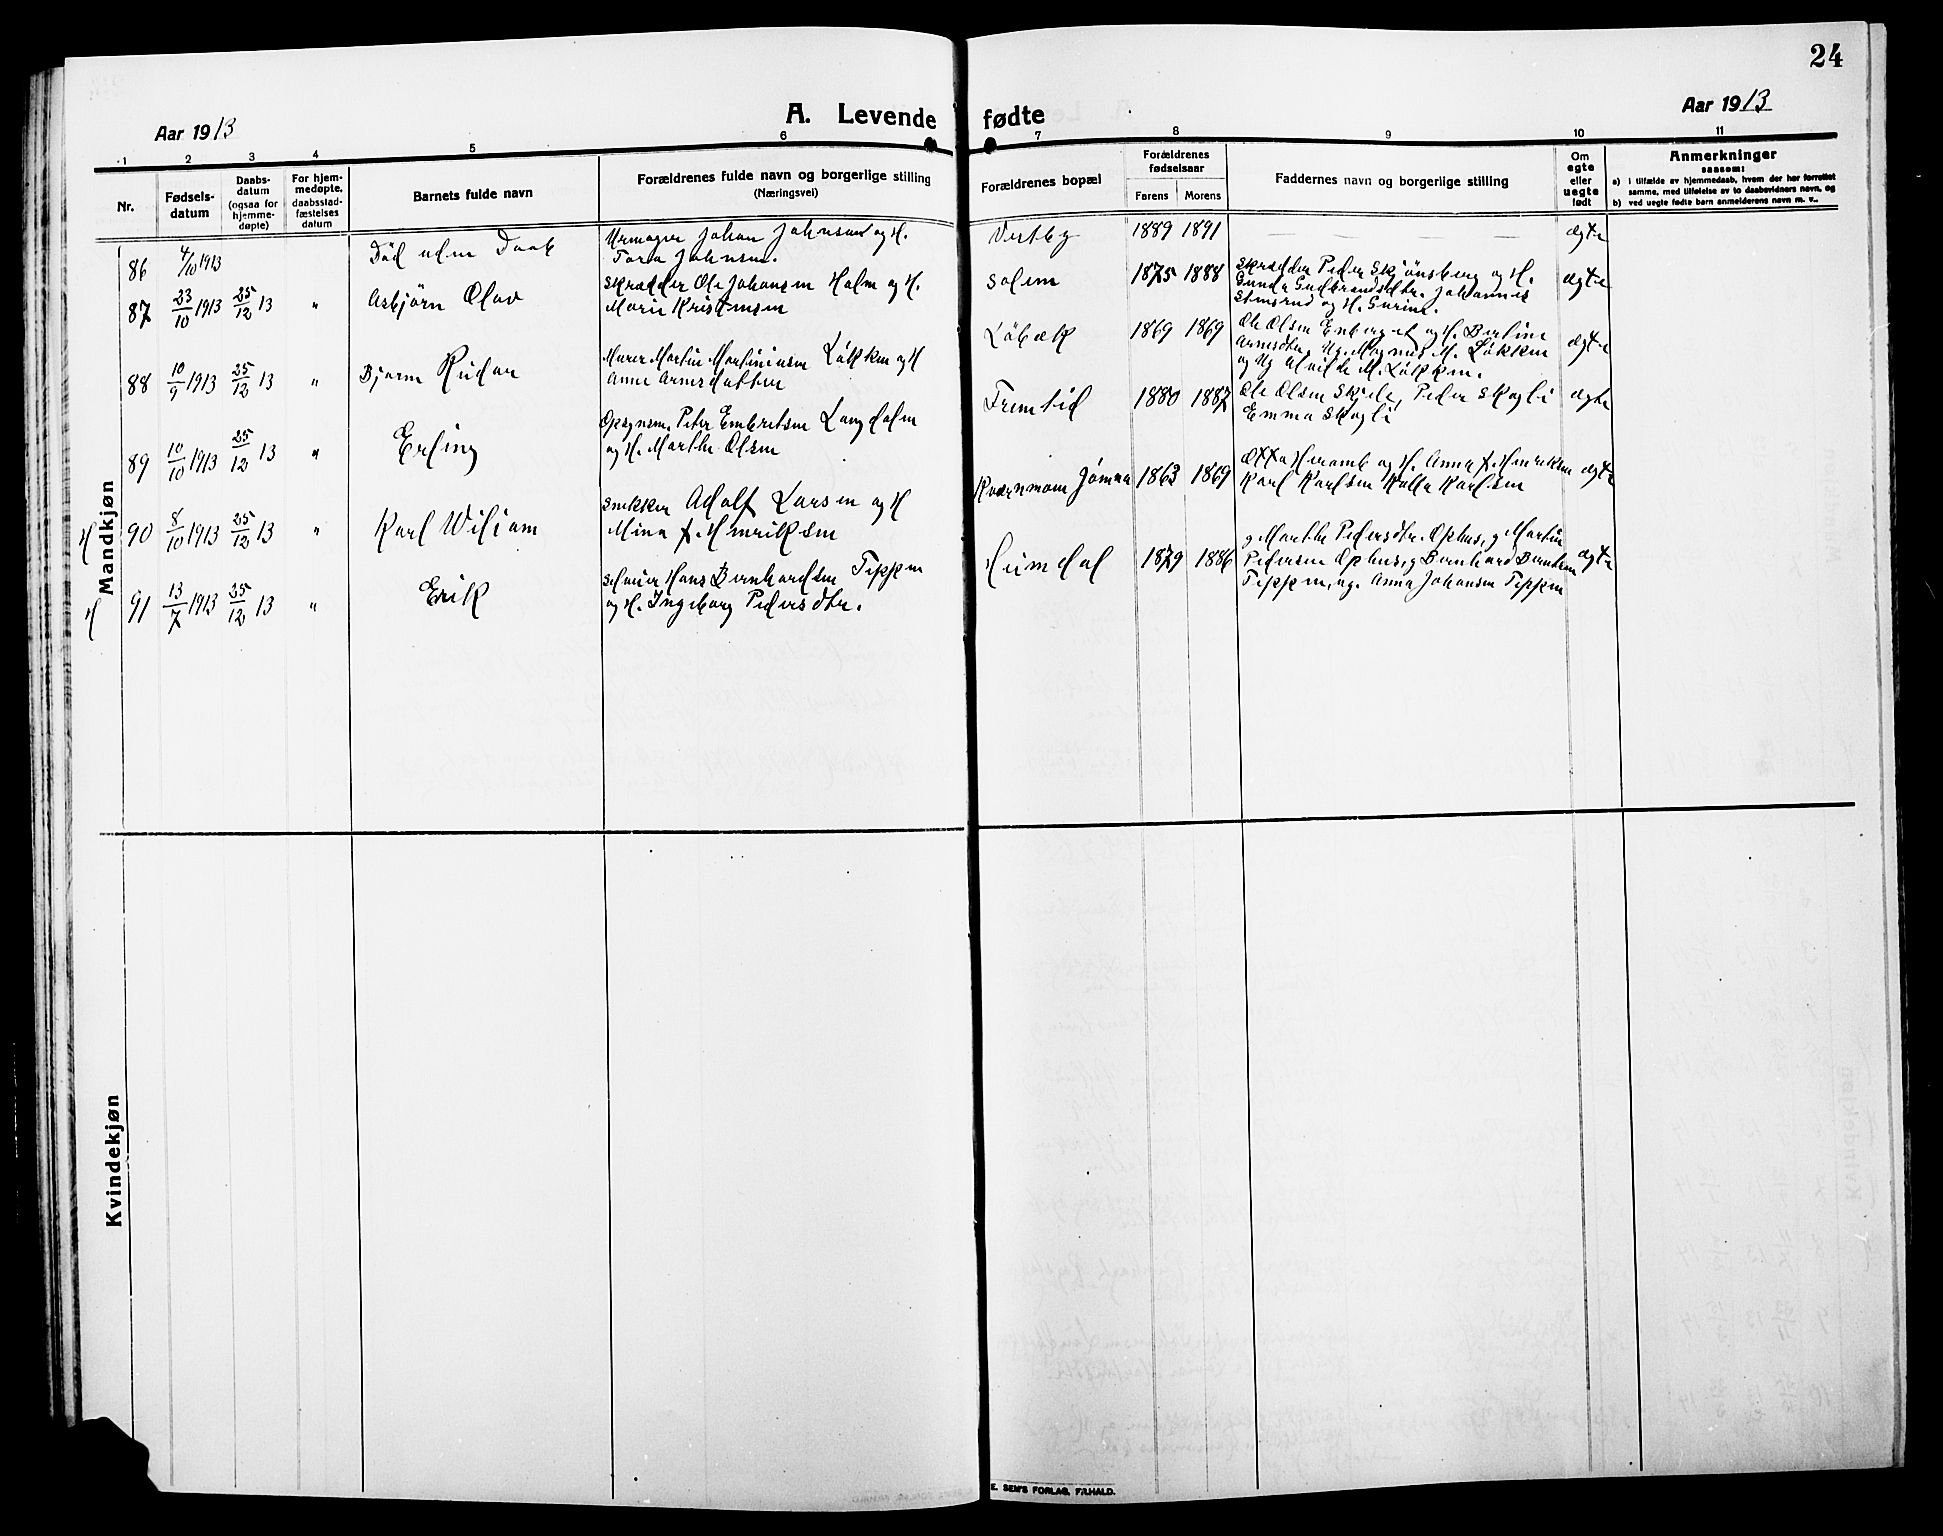 24
Aar 1913
A. Levende fødte
Aar 1913
1 2 3 4 5 6 7 8 9 10 11
Nr.
Fødsels-
datum
Daabs-
datum
(ogsaa for
hjemme-
døpte)
For hjem-
medøpte,
daabsstad-
fæstelses
datum
Barnets fulde navn
Forældrenes fulde navn og borgerlige stilling
(Næringsvei)
Forældrenes bopæl
Forældrenes
fødselsaar
Farens Morens
Faddernes navn og borgerlige stilling
Om
egte
eller
uegte
født
Anmerkninger
saasom:
a) i tilfælde av hjemmedaab, hvem der har forrettet
samme, med tilføielse av to daabsvidners navn, og
b) ved uegte fødte barn anmelderens navn m. v..
Mandkjøn
86 4/10 1913 Död uden Daab
Urmager Johan Johnsen og H.
Tora Johnsen.
Vestby 1889 1891 — — — — ægte
87 23/10 1913 25/12 13 " Asbjörn Olav
Skrædder Ole Johansen Holm og H.
Marie Kristensen
Solem 1875 1888
Skrædder Peder Skjönsberg og H.
Gunda Gudbrandsdtr. Johannes
Stensrud og H. Gurine.
ægte
88 10/9 1913 25/12 13 " Bjarne Reidar
Murer Martin Martiniusen Løkken og H
Anne Arnesdatter
Löbæk 1869 1869
Ole Olsen Enberget og H. Bertine
Arnesdtr, Ug. Magnus M. Løkken
og Ug Alvilde M. Løkken.
ægte
89 10/10 1913 25/12 13 " Erling
Opsynsm. Peter Embretsen Langholm
og H. Marthe Olsen
Fremtid 1880 1887
Ole Olsen Skjele, Peder Skogli
Emma Skogli
ægte
H 90 8/10 1913 25/12 13 " Karl Wiliam
Snekker Adolf Larsen og H
Mina f. Henriksen
Kværnmoen Jømna 1863 1869
Otto Heramb og H. Anna f. Henriksen
Karl Karlsen Kalla Karlsen
ægte
H 91 13/7 1913 25/12 13 " Erik
Hans Bernhardsen Teppen
og H. Ingeborg Pedersdtr.
Heimdal 1879 1886
g Marthe Pedersdtr. Ophus, g Martin
Pedersen Ophus, g Bernhard Berntsen
Teppen, ug. Anna Johansen Teppen
ægte
Kvindekjøn
E. SEM'S FORLAG, F.HALD.